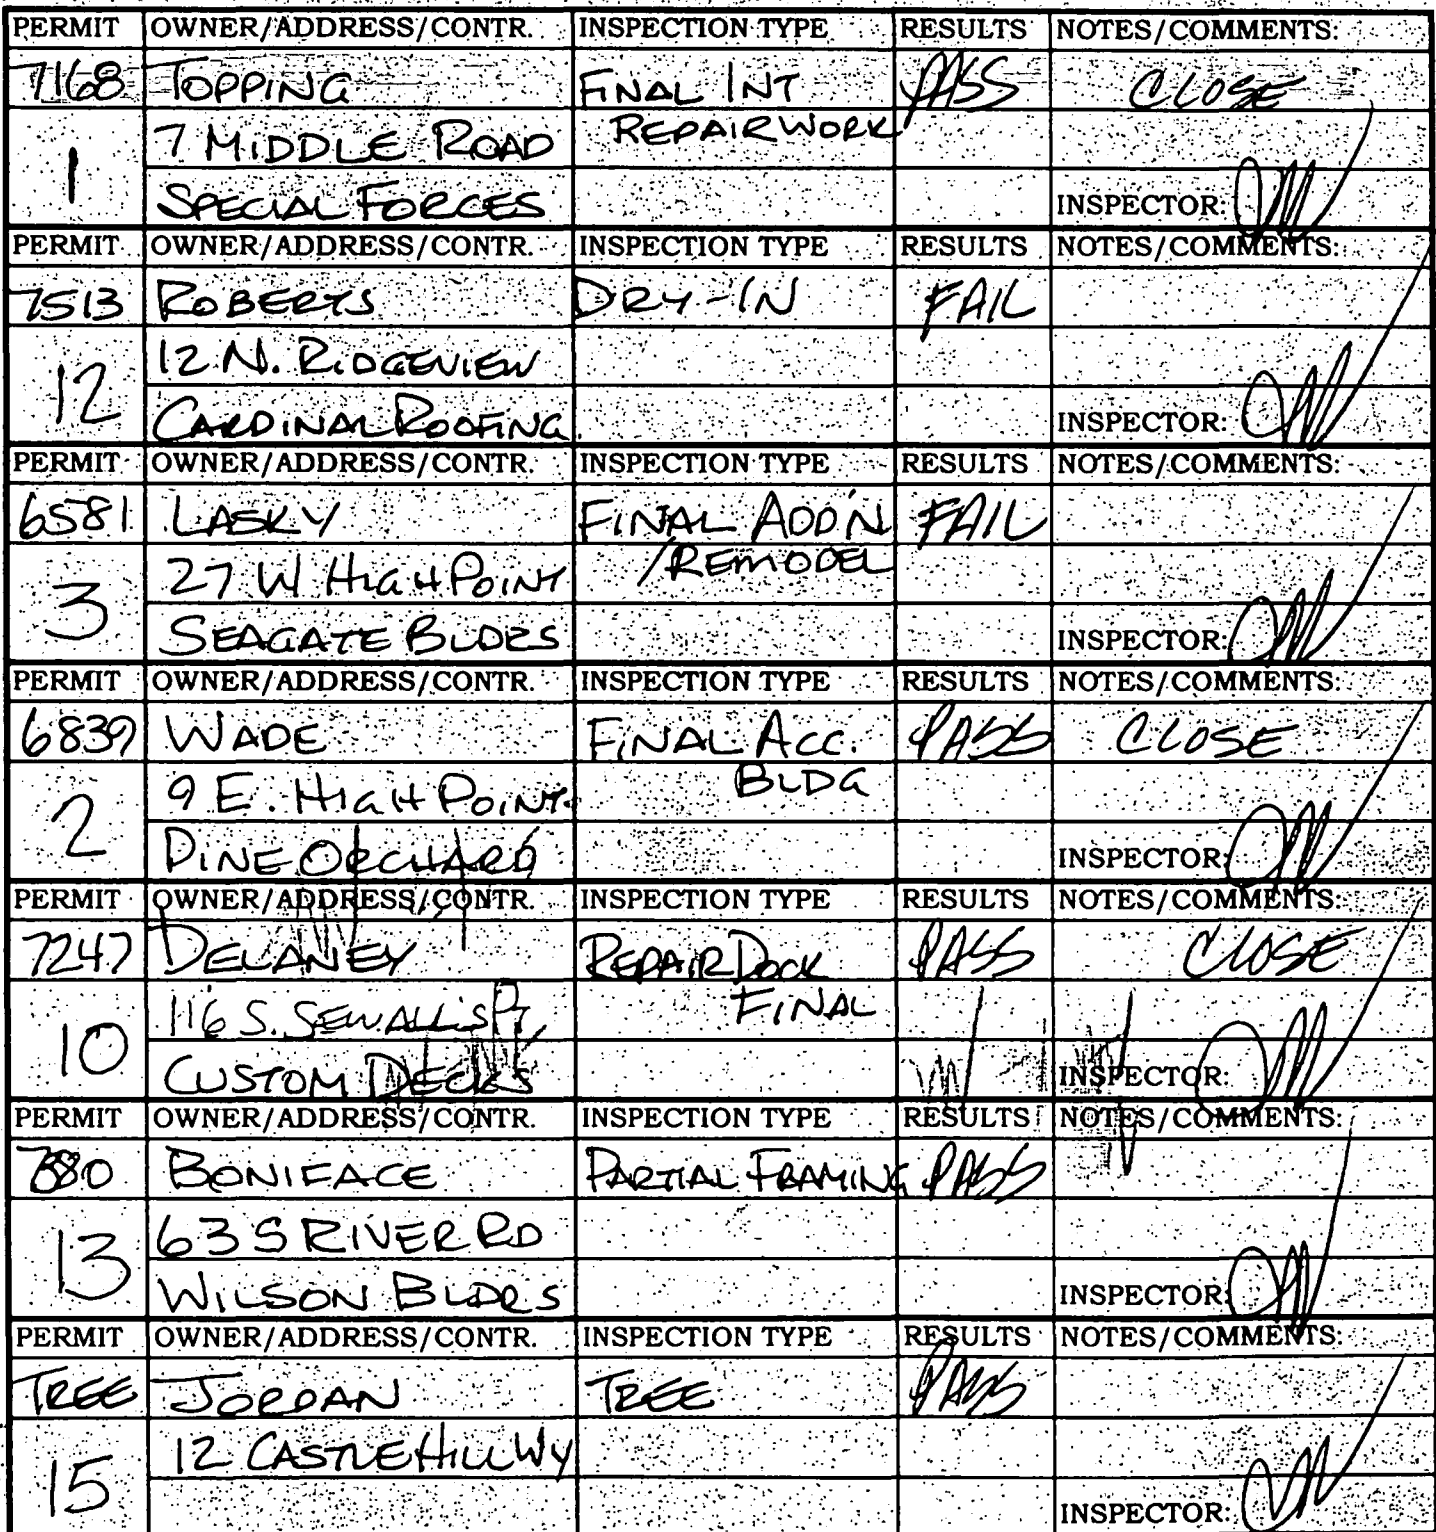 PERMIT OWNER/ADDRESS/CONTR. INSPECTION TYPE RESULTS NOTES/COMMENTS:
7168 TOPPING FINAL INT PASS CLOSE
1 7 MIDDLE ROAD REPAIR WORK
SPECIAL FORCES INSPECTOR:
PERMIT OWNER/ADDRESS/CONTR. INSPECTION TYPE RESULTS NOTES/COMMENTS:
7513 ROBERTS DRY-IN FAIL
12 12 N. RIDGEVIEW
CARDINAL ROOFING INSPECTOR:
PERMIT OWNER/ADDRESS/CONTR. INSPECTION TYPE RESULTS NOTES/COMMENTS:
6581 LASKY FINAL ADD'N FAIL
3 27 W HIGH POINT /REMODEL
SEAGATE BLDRS INSPECTOR:
PERMIT OWNER/ADDRESS/CONTR. INSPECTION TYPE RESULTS NOTES/COMMENTS:
6839 WADE FINAL ACC. PASS CLOSE
2 9 E. HIGH POINT BLDG
PINE ORCHARD INSPECTOR:
PERMIT OWNER/ADDRESS/CONTR. INSPECTION TYPE RESULTS NOTES/COMMENTS:
7247 DELANEY REPAIR DOCK PASS CLOSE
10 116 S. SEWALL'S PT FINAL
CUSTOM DECKS INSPECTOR:
PERMIT OWNER/ADDRESS/CONTR. INSPECTION TYPE RESULTS NOTES/COMMENTS:
BONIFACE PARTIAL FRAMING PASS
13 63 S RIVER RD
WILSON BLDRS INSPECTOR:
PERMIT OWNER/ADDRESS/CONTR. INSPECTION TYPE RESULTS NOTES/COMMENTS:
TREE JORDAN TREE PASS
15 12 CASTLE HILL WY
INSPECTOR: